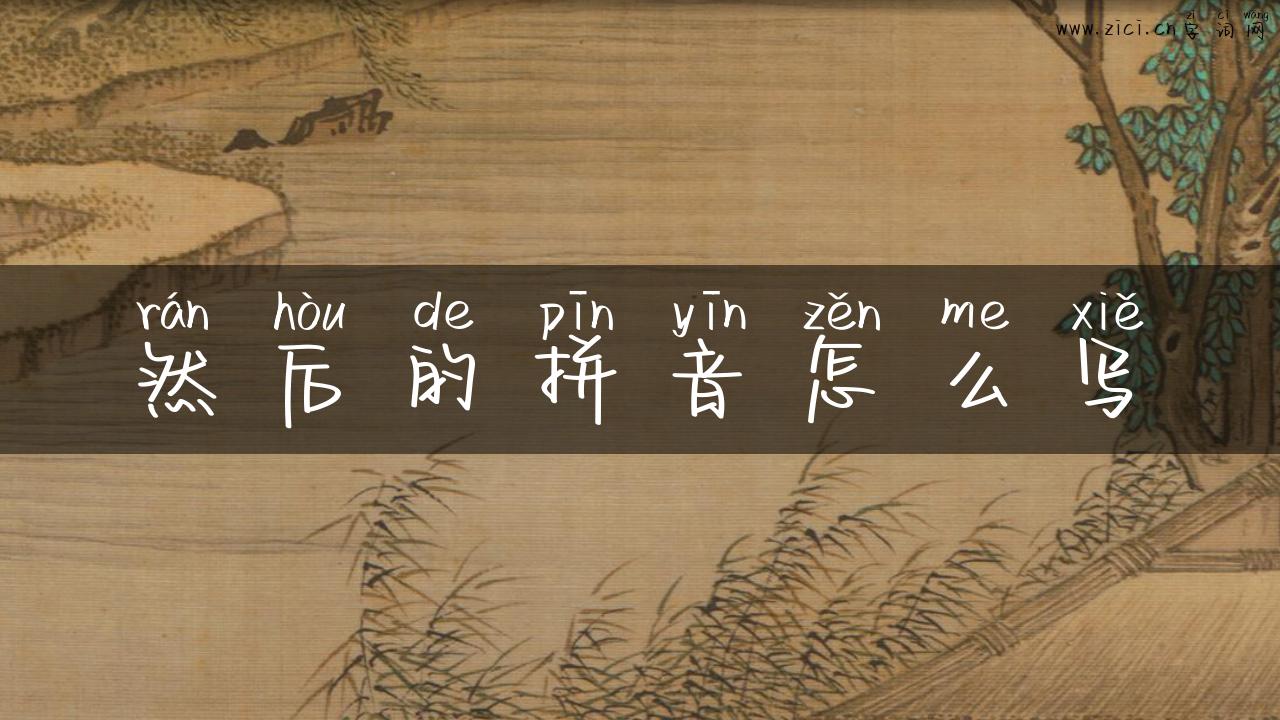 zì cí wǎng
www.zici.cn字词网
rán hòu de pīn yīn zěn me xiě
然后的拼音怎么写